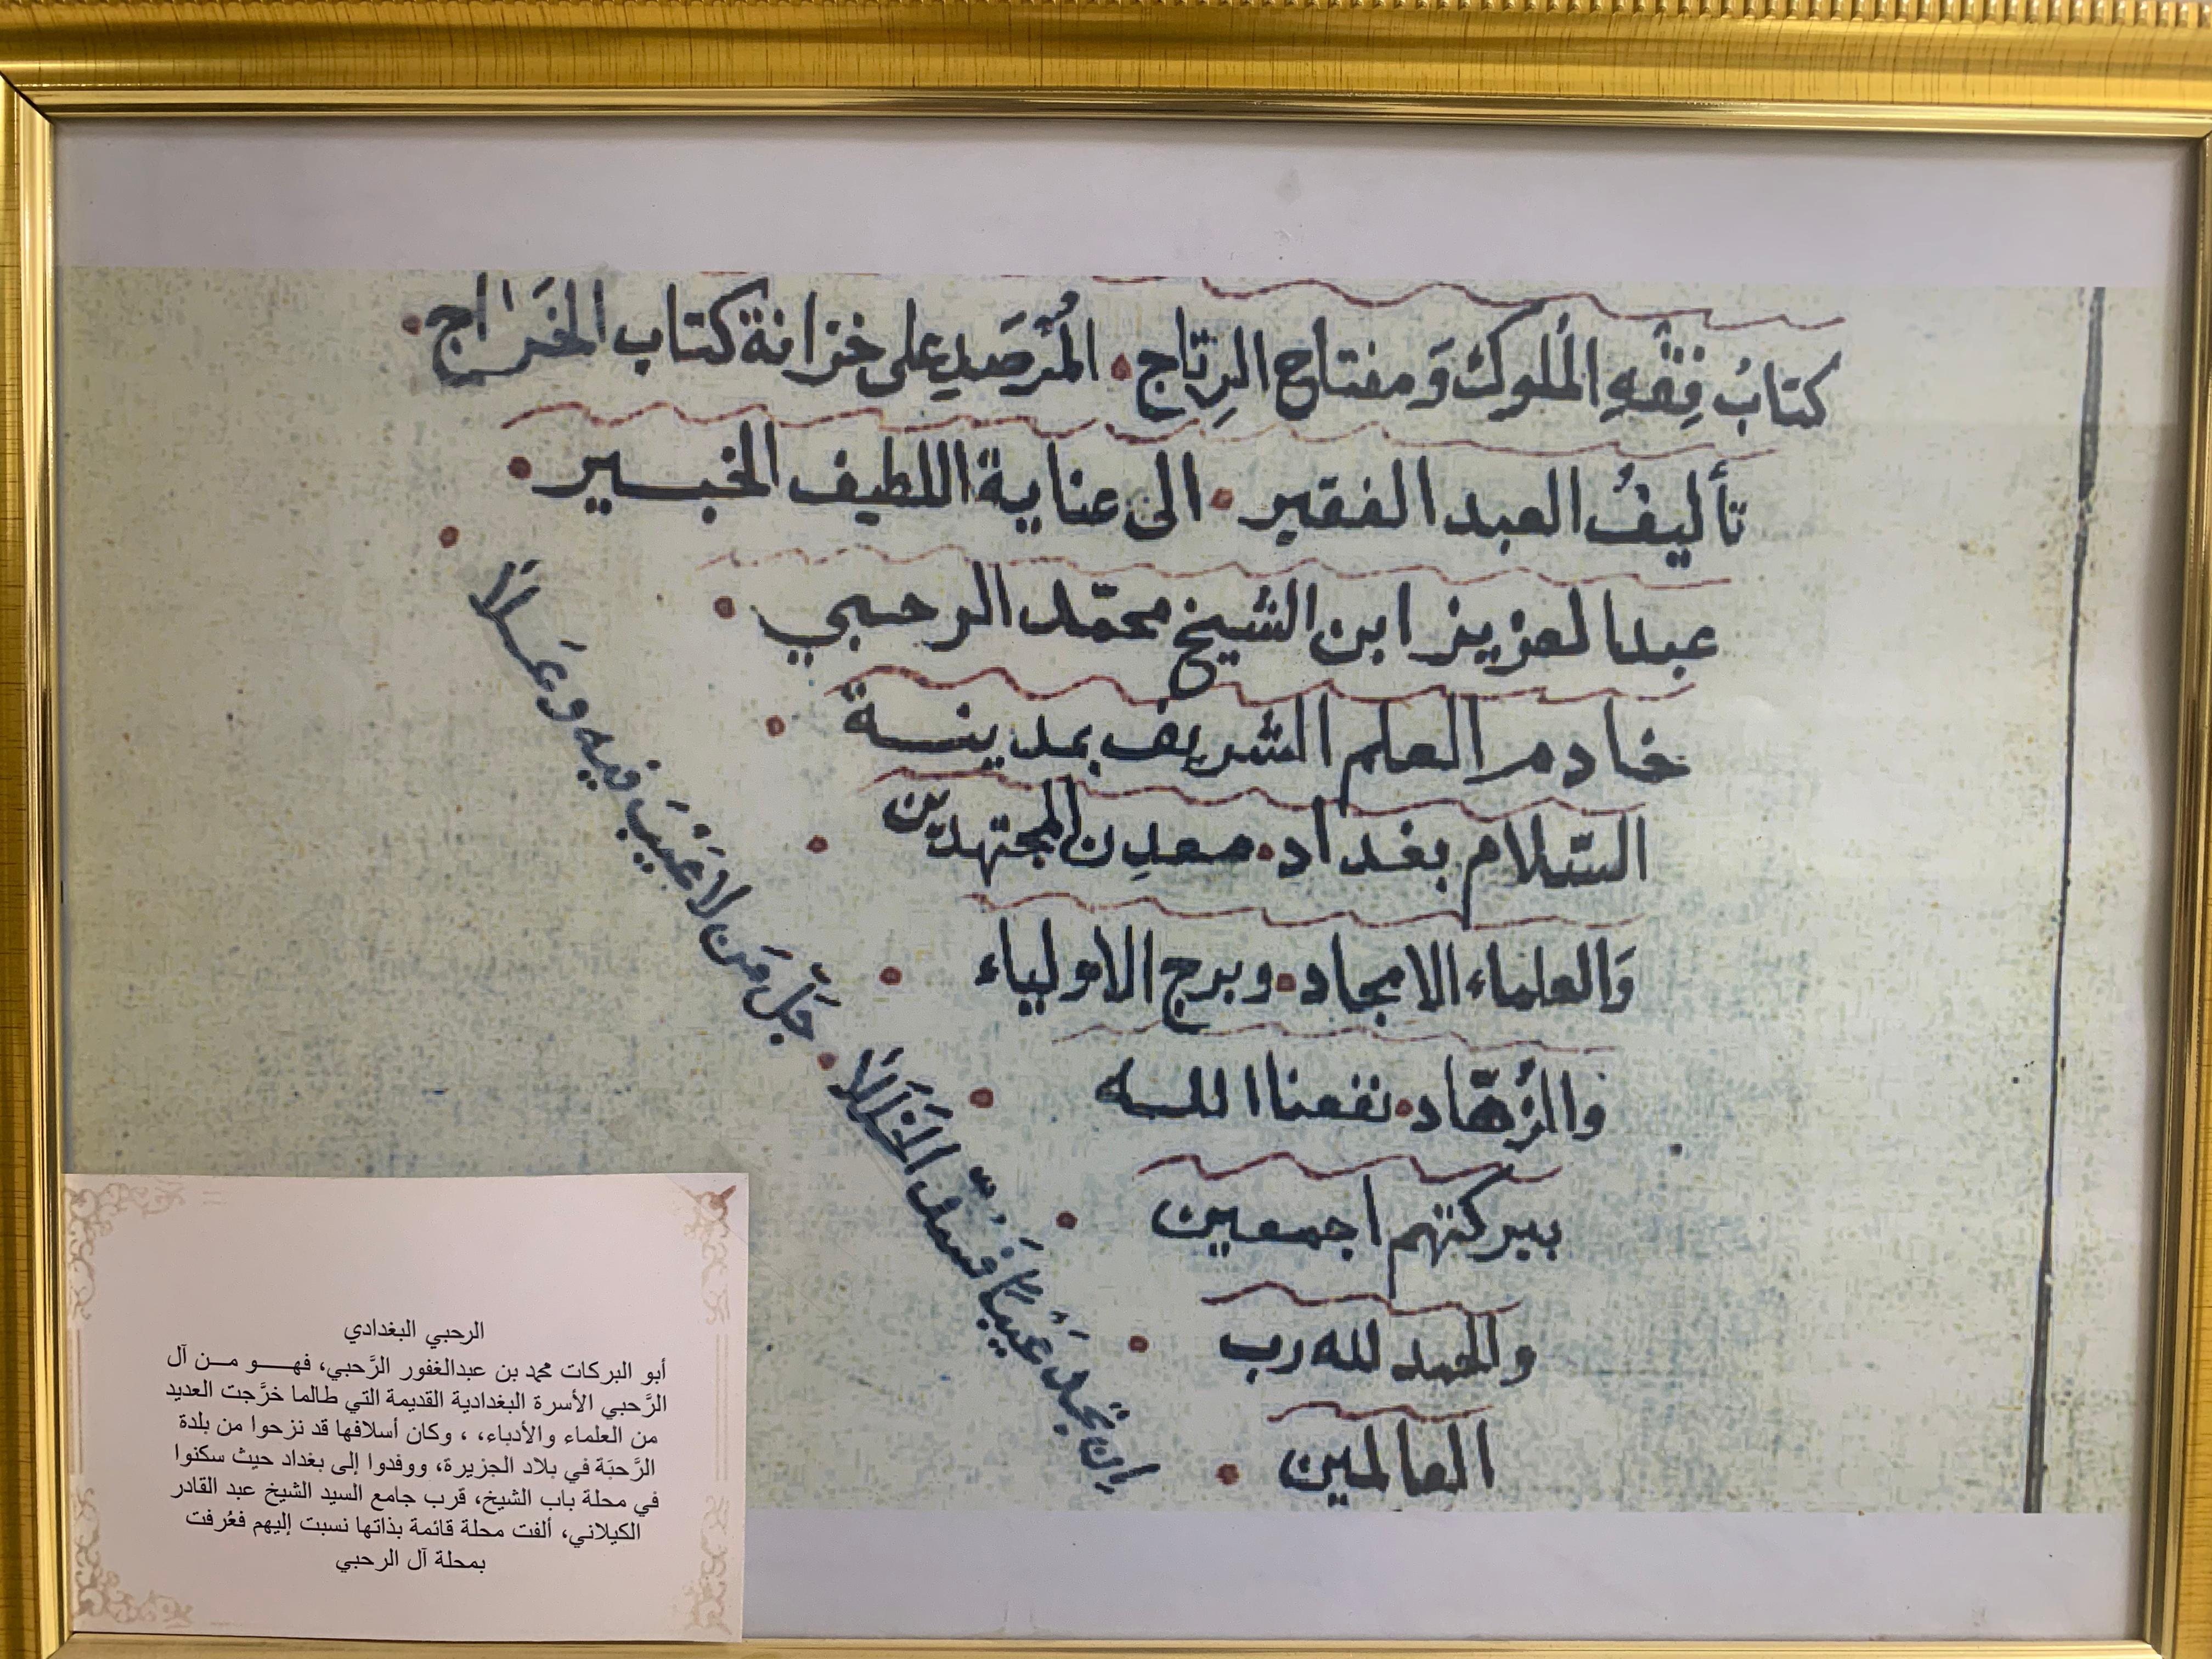 كتابُ فِقْهِ الْمُلوك وَمفتاح الرِتَاج. المُرْصَدِ على خزانة كتاب الخَرَاج.
تأليفُ العبد الفقير. الى عناية اللطيف الخبير.
عبد العزيز ابن الشيخ محمّد الرحبي.
خادم العلم الشريف بمدينة.
السّلام بغداد. معدِن المجتهدين.
وَالعلماء الامجاد. وبرج الاولياء.
والزُهّاد. نفعنا الله.
ببركتهم اجمعين.
والحمد لله رب.
العالمين.
اِن تجد عَيْباً فَسُدّ الخَلَلا.
جَلَّ مَن لا عَيْبَ فيه وعَلا.
الرحبي البغدادي
أبو البركات محمد بن عبدالغفور الرَّحبي، فهو من آل
الرَّحبي الأسرة البغدادية القديمة التي طالما خرَّجت العديد
من العلماء والأدباء، ، وكان أسلافها قد نزحوا من بلدة
الرَّحبَة في بلاد الجزيرة، ووفدوا إلى بغداد حيث سكنوا
في محلة باب الشيخ، قرب جامع السيد الشيخ عبد القادر
الكيلاني، ألفت محلة قائمة بذاتها نسبت إليهم فعُرفت
بمحلة آل الرحبي